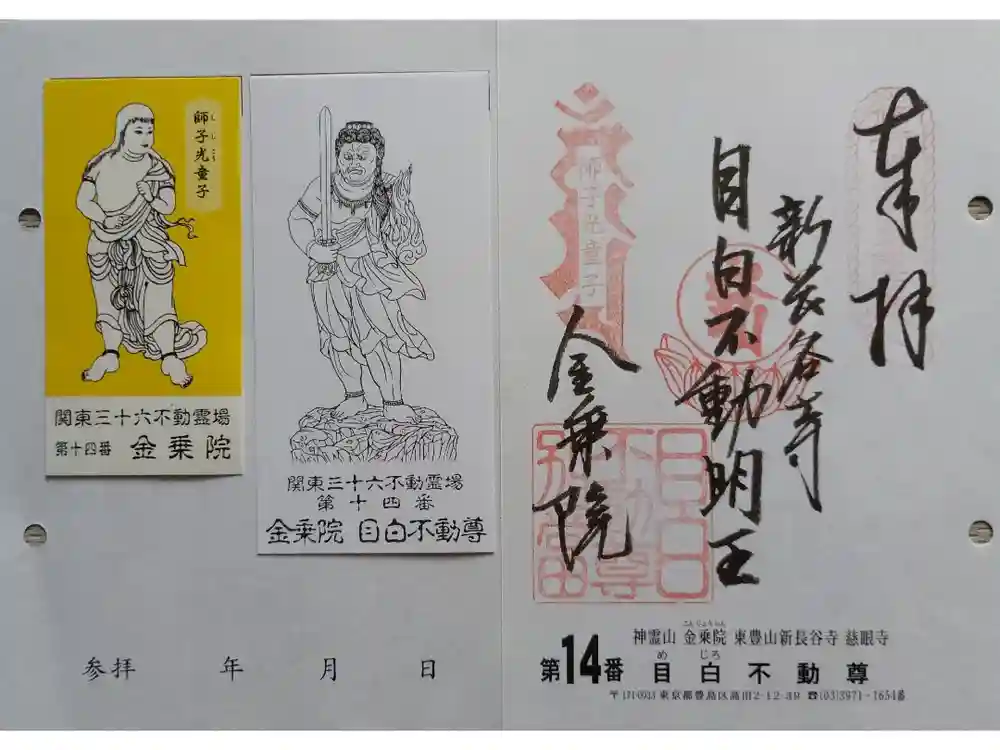 師子光童子
しこう
関東三十六不動霊場
第十四番 金乗院
関東三十六不動霊場
第十四番
金乗院 目白不動尊
参拝 年 月 日
奉拝
新長谷寺
目白不動明王
金乗院
師子光童子
目白
不動尊
別當
神霊山 金乗院 東豊山新長谷寺 慈眼寺
こんじょういん
第14番 目白不動尊
めじろ
〒171-0033 東京都豊島区高田2-12-39 ☎(03)3971-1654番